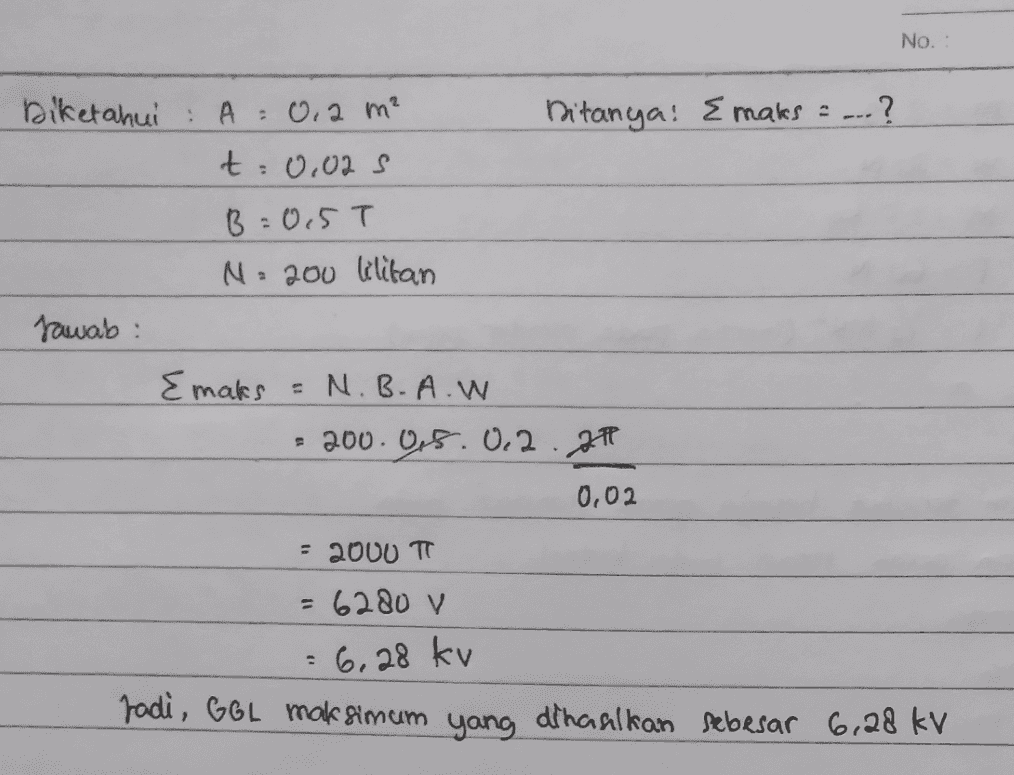 No. :
Diketahui : A = 0,2 m² Ditanya : Σ maks = ---- ?
t = 0,02 s
B = 0,5 T
N = 200 lilitan
Jawab :
Σ maks = N . B . A . W
= 200 . 0,5 . 0,2 . 2π
0,02
= 2000 π
= 6280 V
= 6,28 kV
Jadi, GGL maksimum yang dihasilkan sebesar 6,28 kV